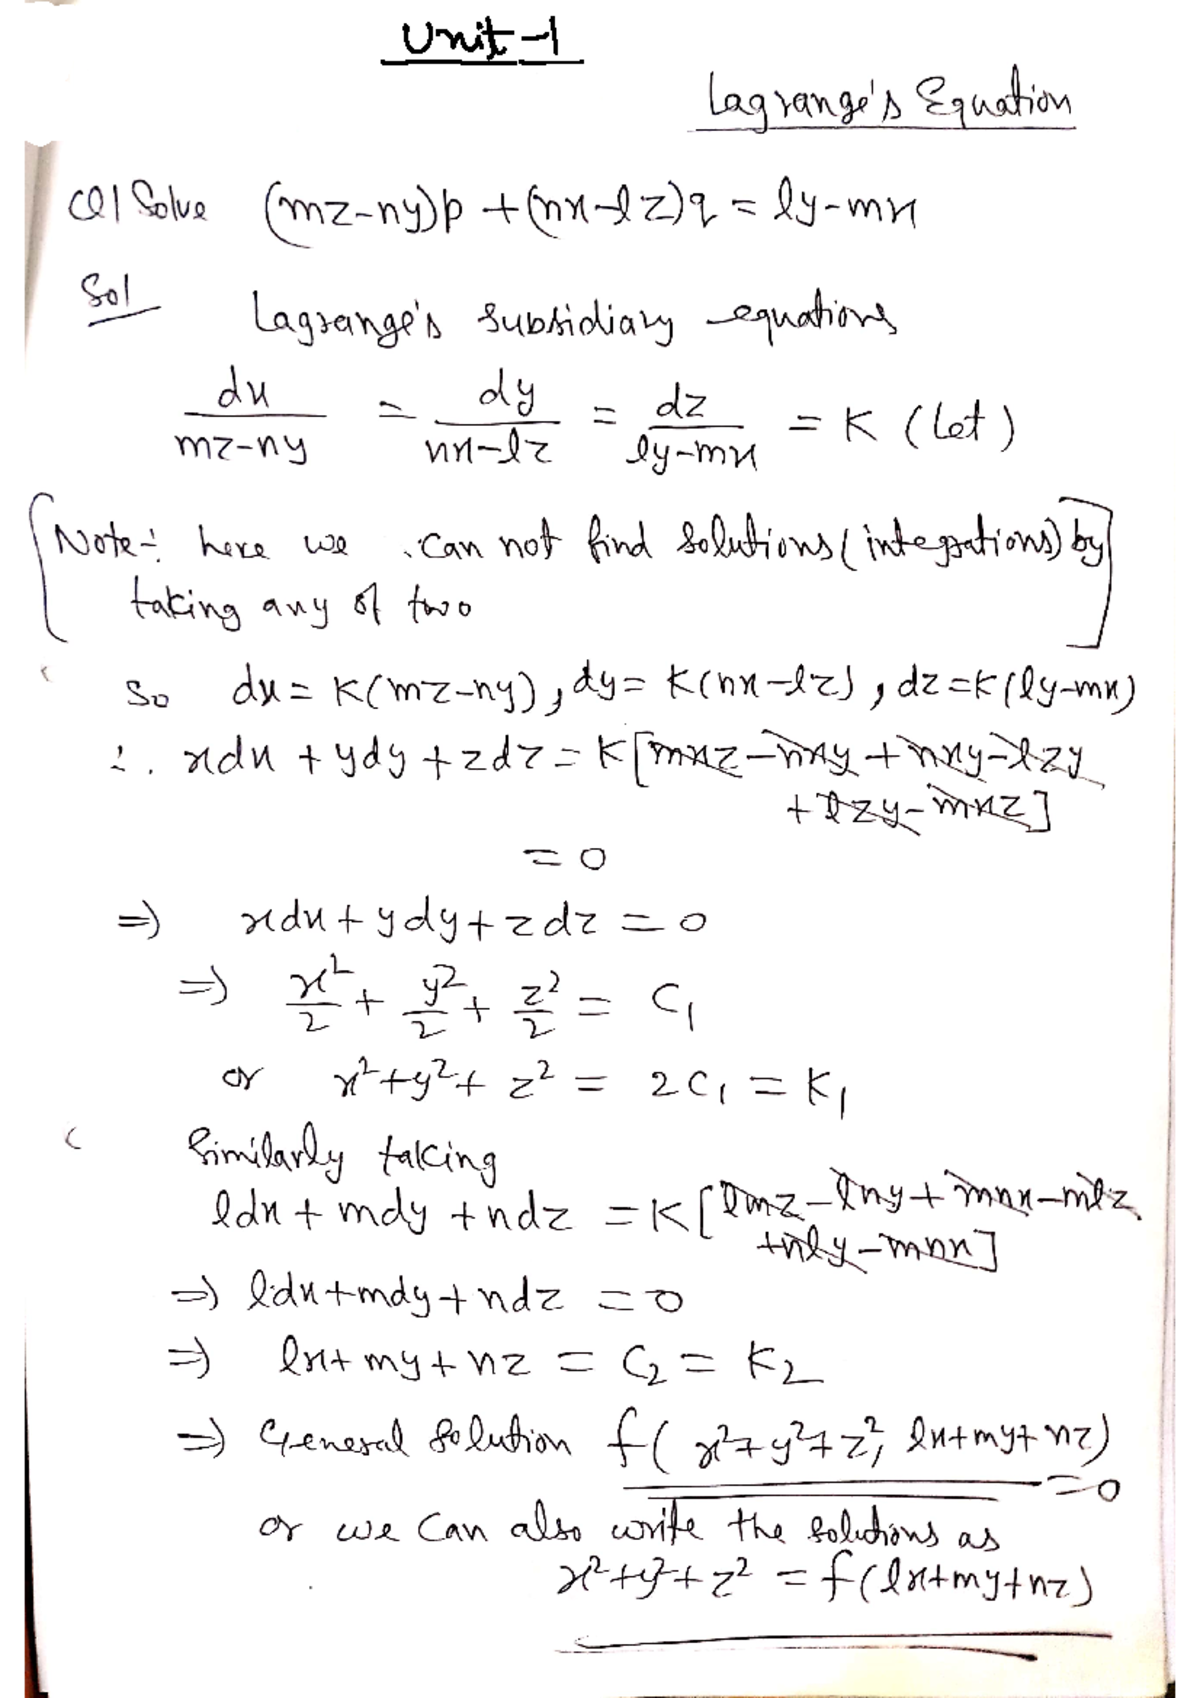 Unit-1
Lagrange's Equation
Q1 Solve (mz-ny)p + (nx-lz)q = ly-mx
Sol Lagrange's subsidiary equations
dx/(mz-ny) = dy/(nx-lz) = dz/(ly-mx) = K (let)
[Note:- here we can not find solutions (integrations) by
taking any of two]
So dx = K(mz-ny), dy = K(nx-lz), dz = K(ly-mx)
∴ xdx + ydy + zdz = K[mxz-nxy+nxy-lzy
+lzy-mxz]
= 0
⇒ xdx + ydy + zdz = 0
⇒ x²/2 + y²/2 + z²/2 = C₁
or x²+y²+z² = 2C₁ = K₁
Similarly taking
ldx + mdy + ndz = K[lmz-lny+mnx-mlz
+nly-mnx]
⇒ ldx+mdy+ndz = 0
⇒ lx+my+nz = C₂ = K₂
⇒ General solution f(x²+y²+z², lx+my+nz)
= 0
or we can also write the solutions as
x²+y²+z² = f(lx+my+nz)